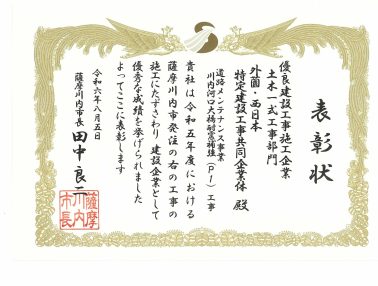 表彰状
優良建設工事施工企業
土木一式工事部門
外薗・西日本
特定建設工事共同企業体 殿
道路メンテナンス事業
川内河口大橋耐震補強(P1)工事
貴社は令和五年度における
薩摩川内市発注の右の工事の
施工にたずさわり建設企業として
優秀な成績を挙げられました
よってここに表彰します
令和六年八月五日
薩摩川内市長 田中良二
薩摩
川内
市長